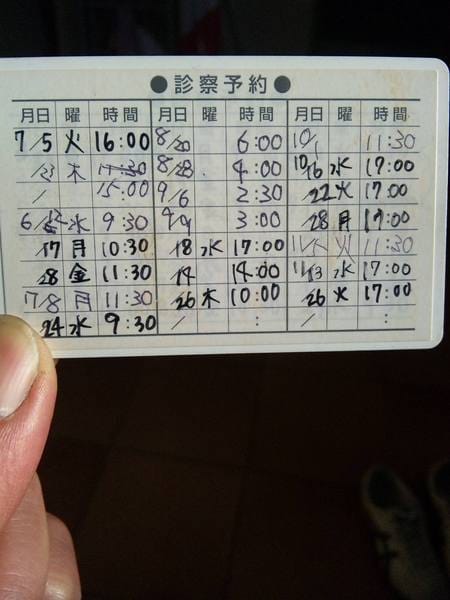 ●診察予約●
月日 曜 時間 月日 曜 時間 月日 曜 時間
7/5 火 16:00 8/20 6:00 10/1 11:30
/23 木 11:30 8/28 4:00 10/16 水 17:00
/ 15:00 9/6 2:30 /22 火 17:00
6/12 水 9:30 9/9 3:00 /28 月 17:00
/17 月 10:30 /18 水 17:00 11/5 火 11:30
/28 金 11:30 /14 14:00 11/13 水 17:00
7/8 月 11:30 /26 木 10:00 /26 火 17:00
/24 水 9:30 / : / :